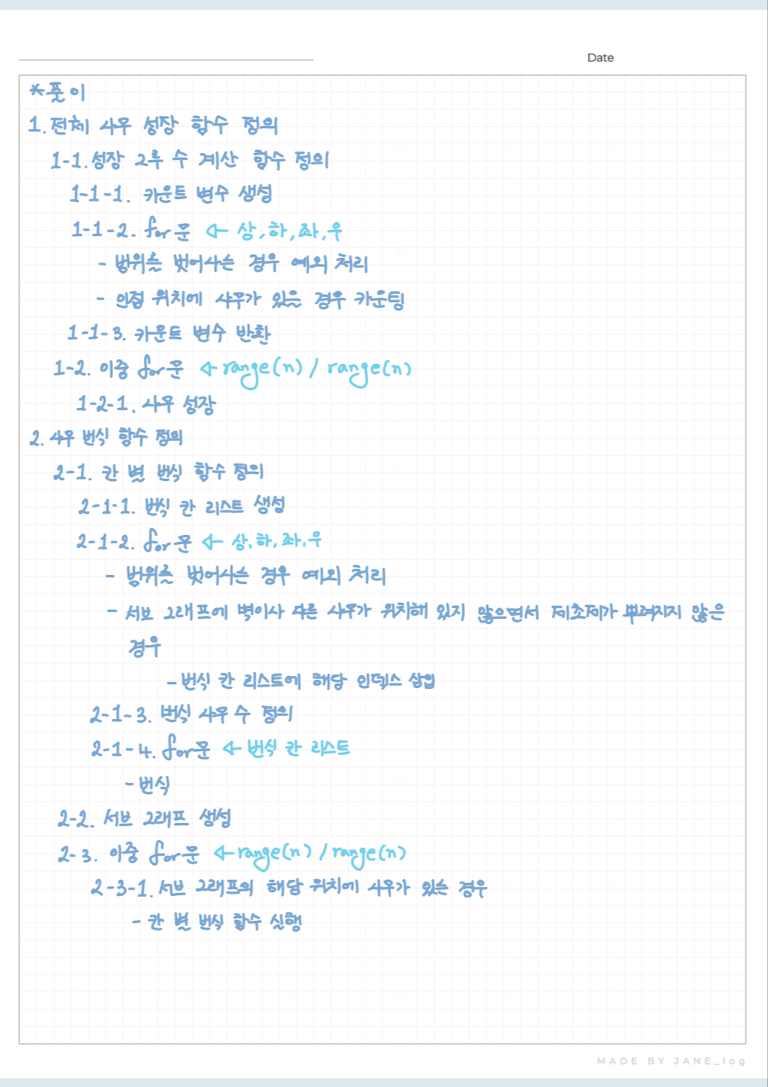 *풀이
1. 전체 나무 성장 함수 정의
1-1. 성장 그루 수 계산 함수 정의
1-1-1. 카운트 변수 생성
1-1-2. for문 ← 상,하,좌,우
- 범위를 벗어나는 경우 예외 처리
- 인접 위치에 나무가 있을 경우 카운팅
1-1-3. 카운트 변수 반환
1-2. 이중 for문 ← range(n) / range(n)
1-2-1. 나무 성장
2. 나무 번식 함수 정의
2-1. 칸 별 번식 함수 정의
2-1-1. 번식 칸 리스트 생성
2-1-2. for문 ← 상,하,좌,우
- 범위를 벗어나는 경우 예외 처리
- 서브 그래프에 벽이나 다른 나무가 위치해 있지 않으면서 제초제가 뿌려지지 않은
경우
- 번식 칸 리스트에 해당 인덱스 삽입
2-1-3. 번식 나무 수 정의
2-1-4. for문 ← 번식 칸 리스트
- 번식
2-2. 서브 그래프 생성
2-3. 이중 for문 ← range(n) / range(n)
2-3-1. 서브 그래프의 해당 위치에 나무가 있는 경우
- 칸 별 번식 함수 실행
Date
MADE BY JANE_log